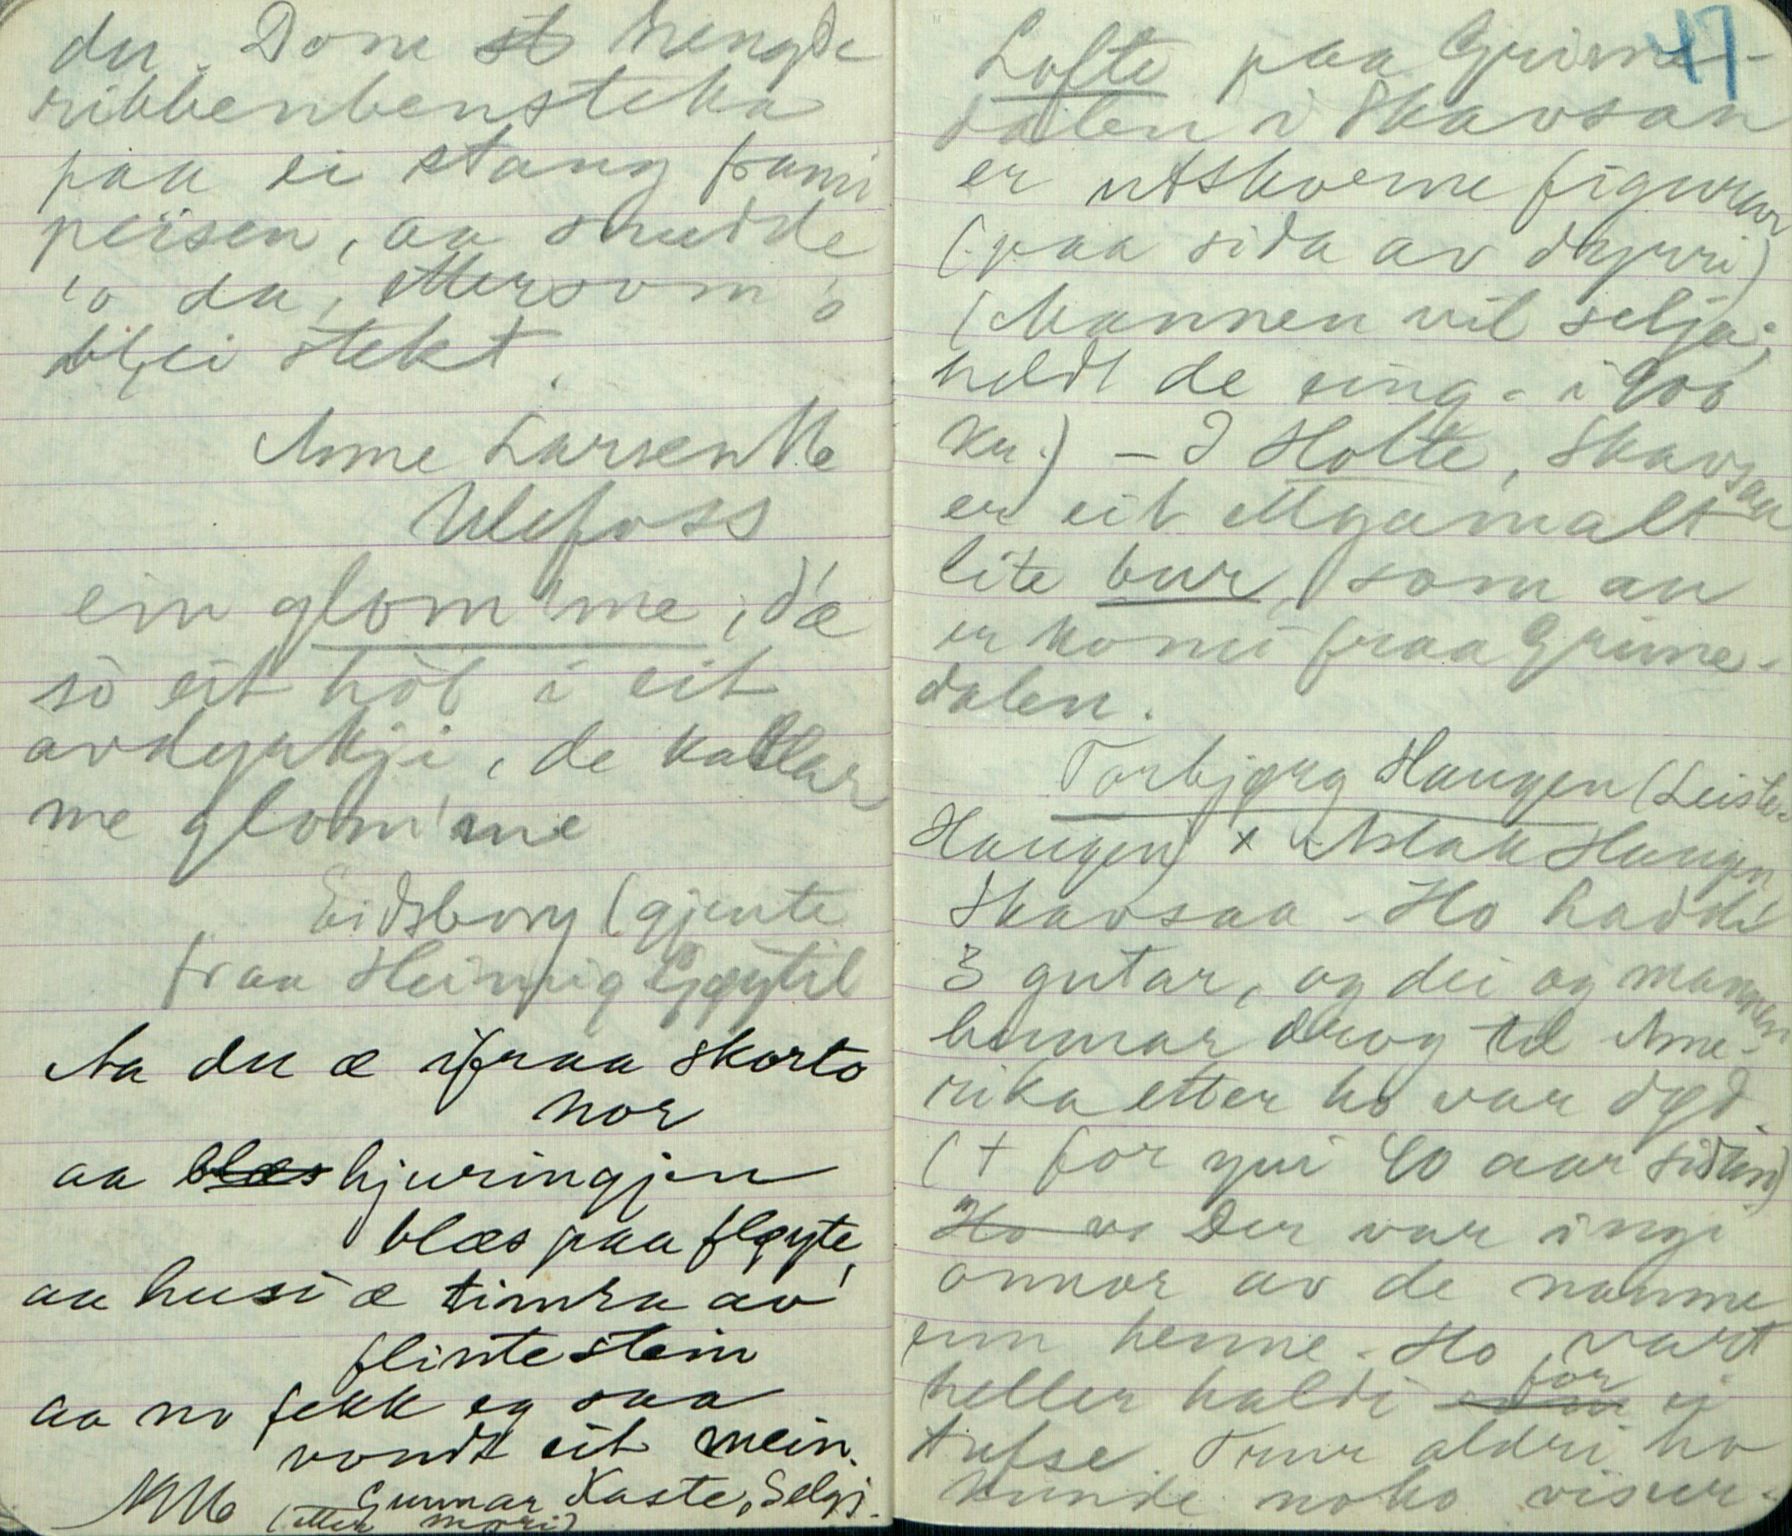 du. Dom st hengde
ribbenbensteka
paa ei stang frami
peisen, aa snudde
'o da, ettersom 'o
blei stekt.
Anne Larsen
Ulefoss
ein glom'me, d'æ
so eit hòl i eit
avdyrkji, de kallar
me glom'me
Eidsborg (gjente
fraa Heimrig Gjøytil
Aa du æ ifraa Skorto
nor
aa blæs hjuringjen
blæs paa fløyte,
aa husi æ timra av
flintestein
aa no fekk eg saa
vondt eit mein.
Gunnar Kaste, Selgj.
(etter mori)
47
Lofte paa Grime-
dalen i Skavsaa
er utskorne figurar
(paa sida av dyrri)
(Mannen vil selja;
heldt de eing. i 900
kr.) – I Holte, Skavsaa
er eit ellgamalt
lite bur, som au
er komi fraa Grime-
dalen.
Torbjørg Haugen (Leiste-
Haugen) x Aslak Haugen
Skavsaa - Ho haddi
3 gutar, og dei og mannen
hennar drog til Ame-
rika etter ho var død.
(+ for yvi 40 aar sidan)
Ho va Der var ingi
onnor av de namne
enn henne. Ho vart
heller haldi for ei
tufse. Trur aldri ho
kunde noko visur.